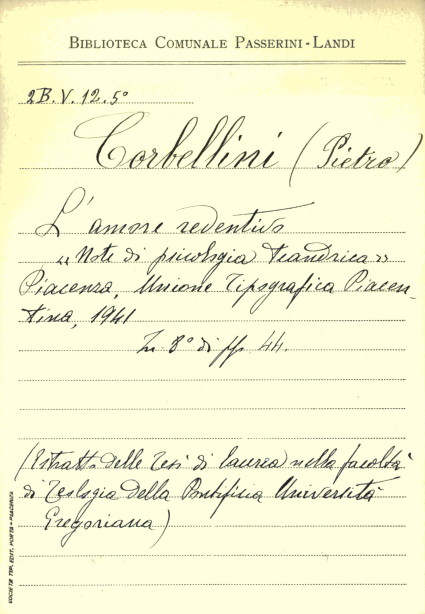 BIBLIOTECA COMUNALE PASSERINI-LANDI
2B.V.12.5°
Corbellini (Pietro)
L'amore redentivo
"Note di psicologia teandrica"
Piacenza, Unione Tipografica Piacen-
tina, 1941
In 8° di pp 44.
(Estratto delle tesi di laurea nella facoltà
di Teologia della Pontificia Università
Gregoriana)
SOCIETÀ TIP. EDIT. PORTA - PIACENZA